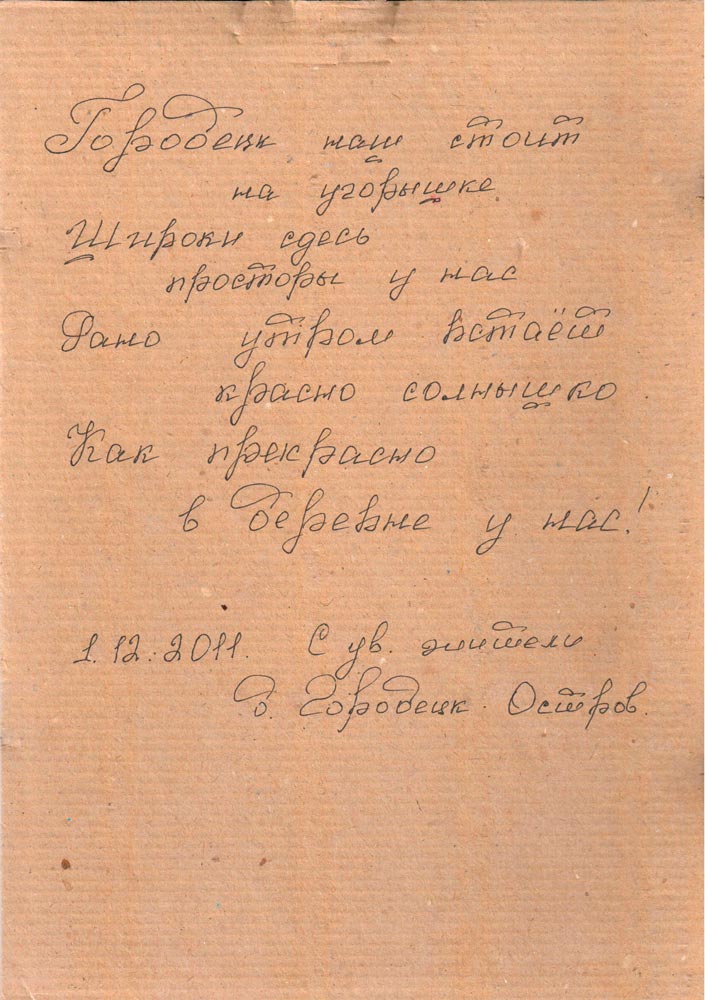 Городецк наш стоит
на угорышке
Широки сдесь
просторы у нас
Рано утром встаёт
красно солнышко.
Как прекрасно
в деревне у нас!
1.12.2011. С ув. жители
д. Городецк. Остров.